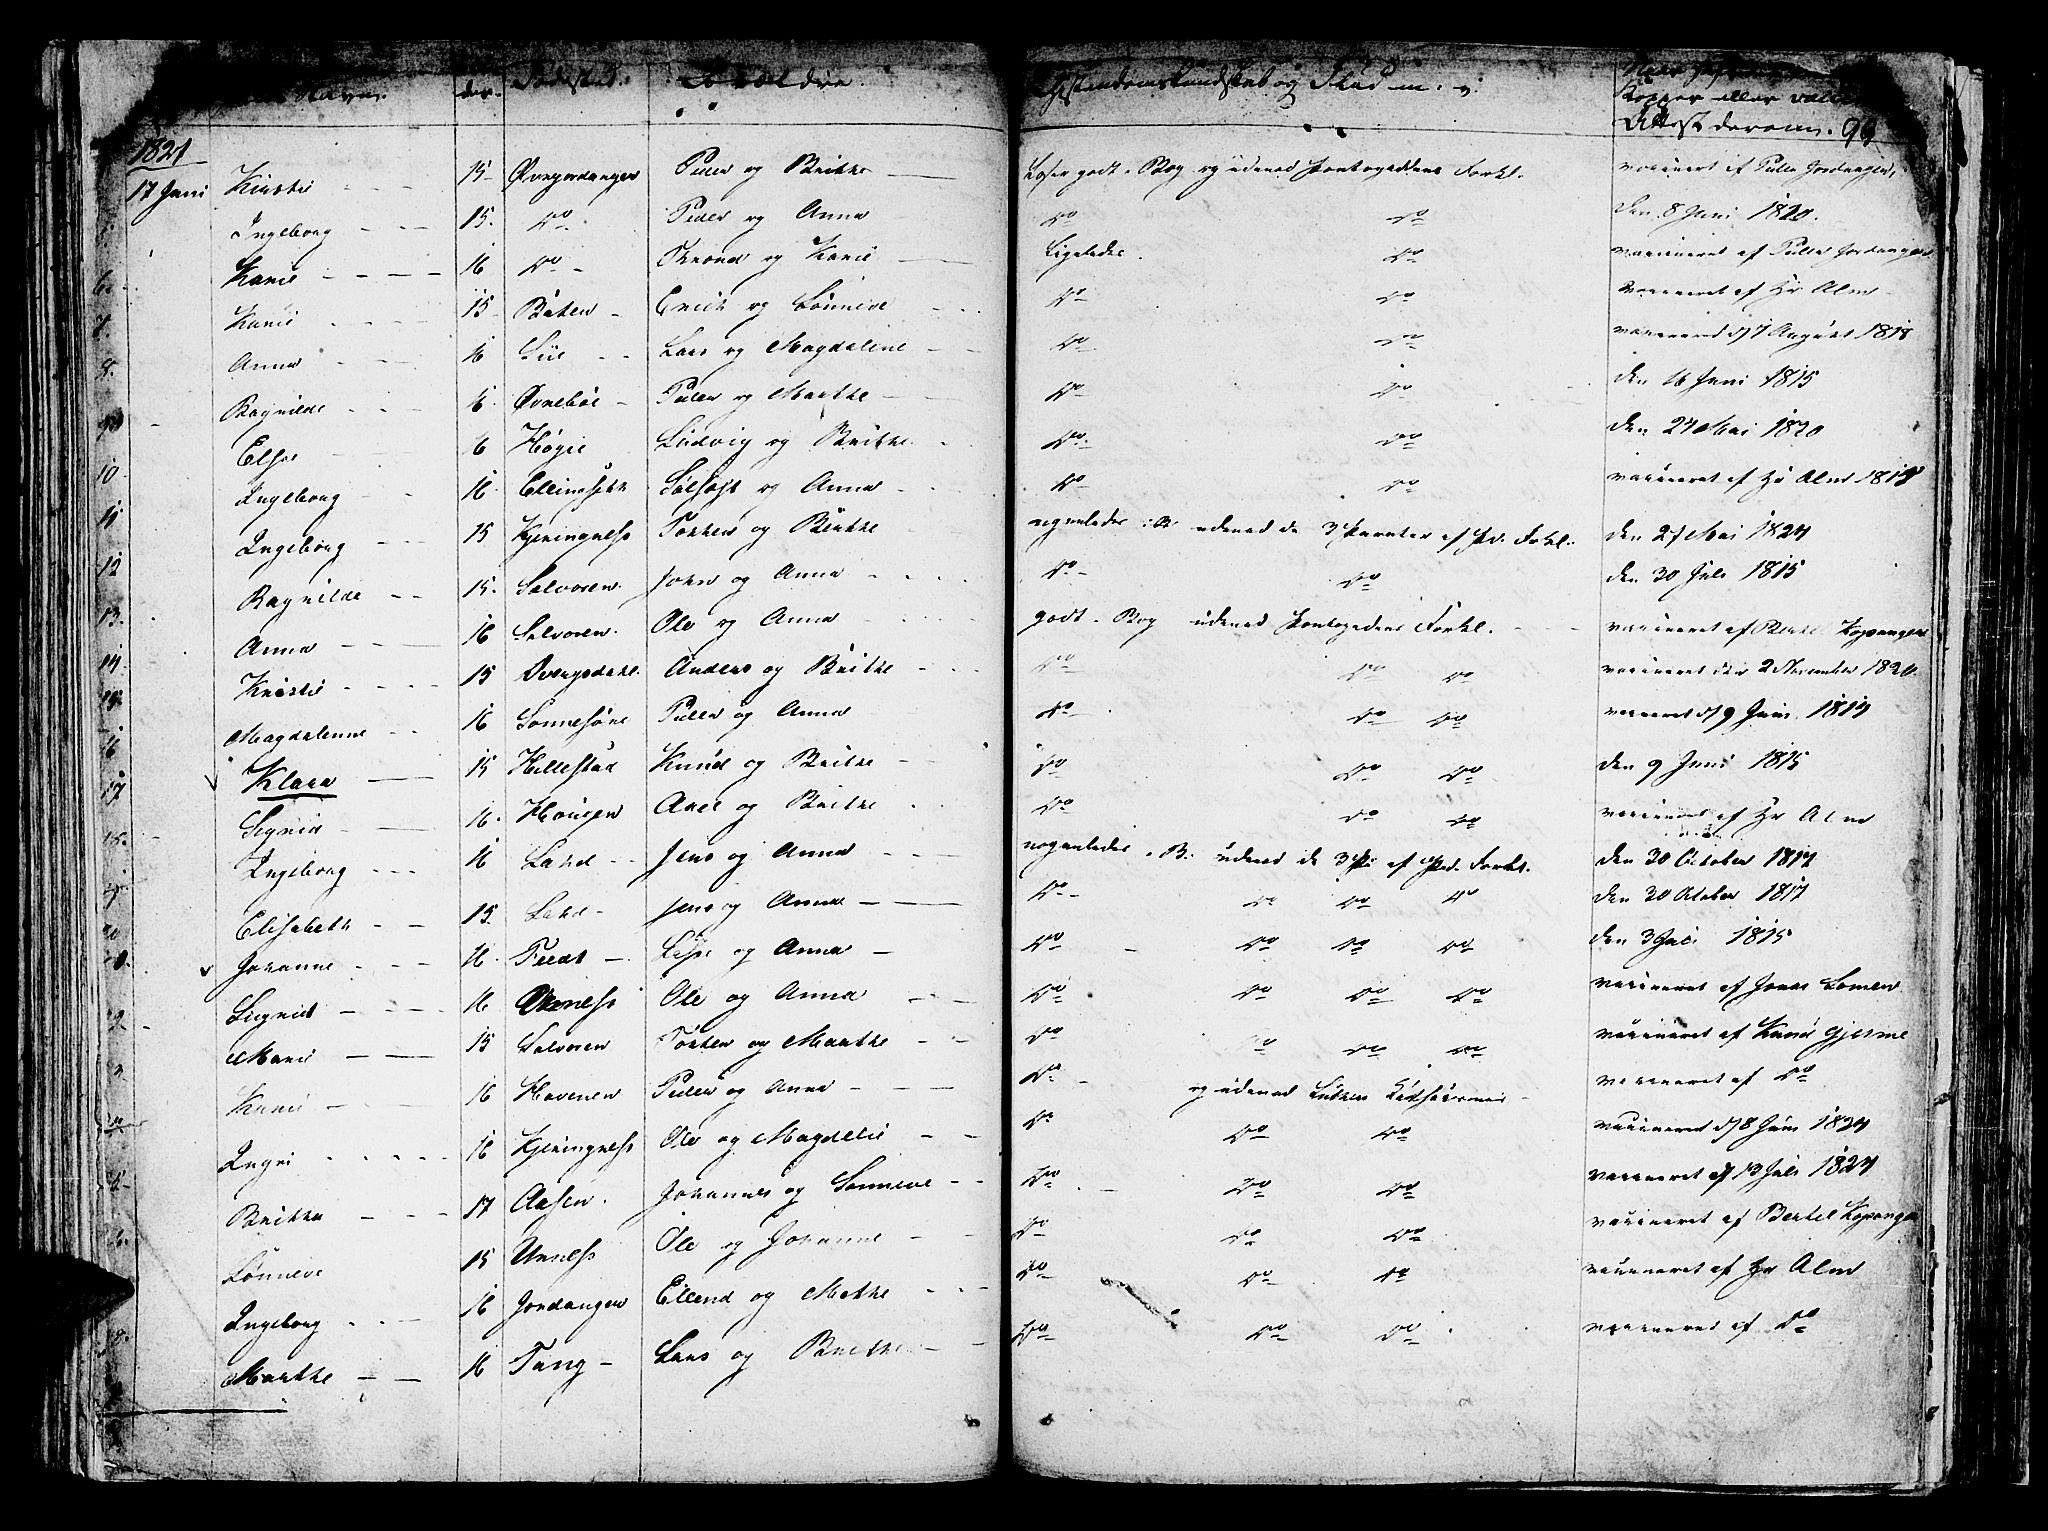 Navn. der. Fødested. Forældre. Christendomskundskab og Flid m. v. Kopper eller vacc
Attest derom. 96
1821
17 Juni Kirstie 15 Øvrejordanger Peder og Brithe Læser godt i Bog og udenad Pontoppidans Forkl. vaccineret af Peder Jordanger,
Ingeborg 15. Do Peder og Anna Do Do den 8 Juni 1820.
6. Karie 16 Do Thrond og Karie Ligeledes. Do vaccineret af Peder Jordanger
7. Karie 15 Erich og Sønneve Do Do vaccineret af Hr Alm
8. Anna 16 Lie Lars og Magdalene Do Do vaccineret d 7 August 1818
Ragnilde 16. Øvrebøe Peder og Marthe Do Do den 16 Juni 1815
10 Else 16 Høgie Ludvig og Brithe Do Do den 27 Mai 1820
11 Ingeborg 16 Ellingsæth og Anna Do Do vaccineret af Hr Alm 1819
12 Ingeborg 15 Kjeringness Torsten og Brithe nogenledes i B. udenad de 3 Parater af Pd. Forkl. den 27 Mai 1820
13. Ragnilde 15. Salvoren John og Anna Do Do den 30 Juli 1815
14. Anna 16 Salvoren. Ole og Anna godt i Bog udenad Pontopidans Forkl. vaccineret af Bertel Kopangen
Kristie 15 Anders og Brithe Do Do Do vaccineret den 2 November 1820.
16 Magdalenne 16 Peder og Anna Do Do Do vaccineret d 9 Juni 1819
17 Klara 15 Hillestad Knud og Brithe Do Do Do den 9 Juni 1815
Signid 16. Hougen Arne og Brithe Do Do Do vaccineret af Hr Alm
Ingeborg 16 Lahd Jens og Anna nogenledes i B. udenad de 3 P. af Pd. Forkl. den 30 October 1817
Elisabeth 15. Lahd Jens og Anna Do Do Do Do den 30 October 1817
Johanne 16. Feedt og Anna Do Do Do Do den 3 Juli 1815
Signid 16 Orness Ole og Anna Do Do Do Do vaccineret af Jonas Lomen
Marie 15 Salvoren Torsten og Marthe Do Do Do Do vaccineret af Knud Gjerme
Karie 16 Havenen Peder og Anna Do og udenad Luthers vaccineret af Do
Ingri 16 Kjeringness Ole og Magdelie Do Do Do vaccineret d 8 Juni 1820
Brithe 17 Aasen. Johannes og Sønneve Do Do Do vaccineret d 13 Juli 1820
Sønneve 15 Urness Ole og Johanne Do Do Do vaccineret af Bertel Kopangen
Ingeborg 16 Jordangen Ellend og Methe Do Do Do vaccineret af Hr Alm
Marthe 16 Tang Lars og Brithe Do Do Do vaccineret af Do